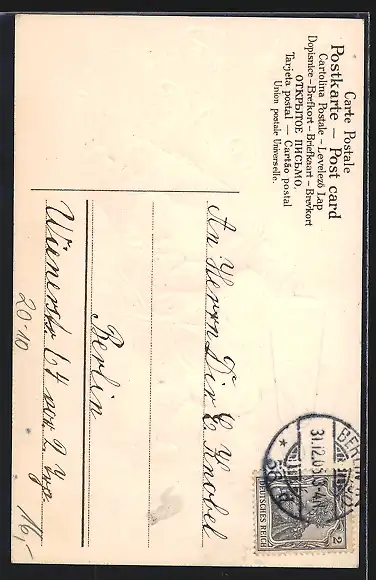 Carte Postale
Postkarte – Post card
Cartolina Postale – Levelező Lap
Dopisnice – Brefkort – Briefkaart – Brevkort
ОТКРЫТОЕ ПИСЬМО.
Tarjeta postal — Cartão postal
Union postale Universelle.
BERLIN
31.12.03
DEUTSCHES REICH
2
An Herrn Dir E Knobel
Berlin
Wienerstr 64
20-10
16,-